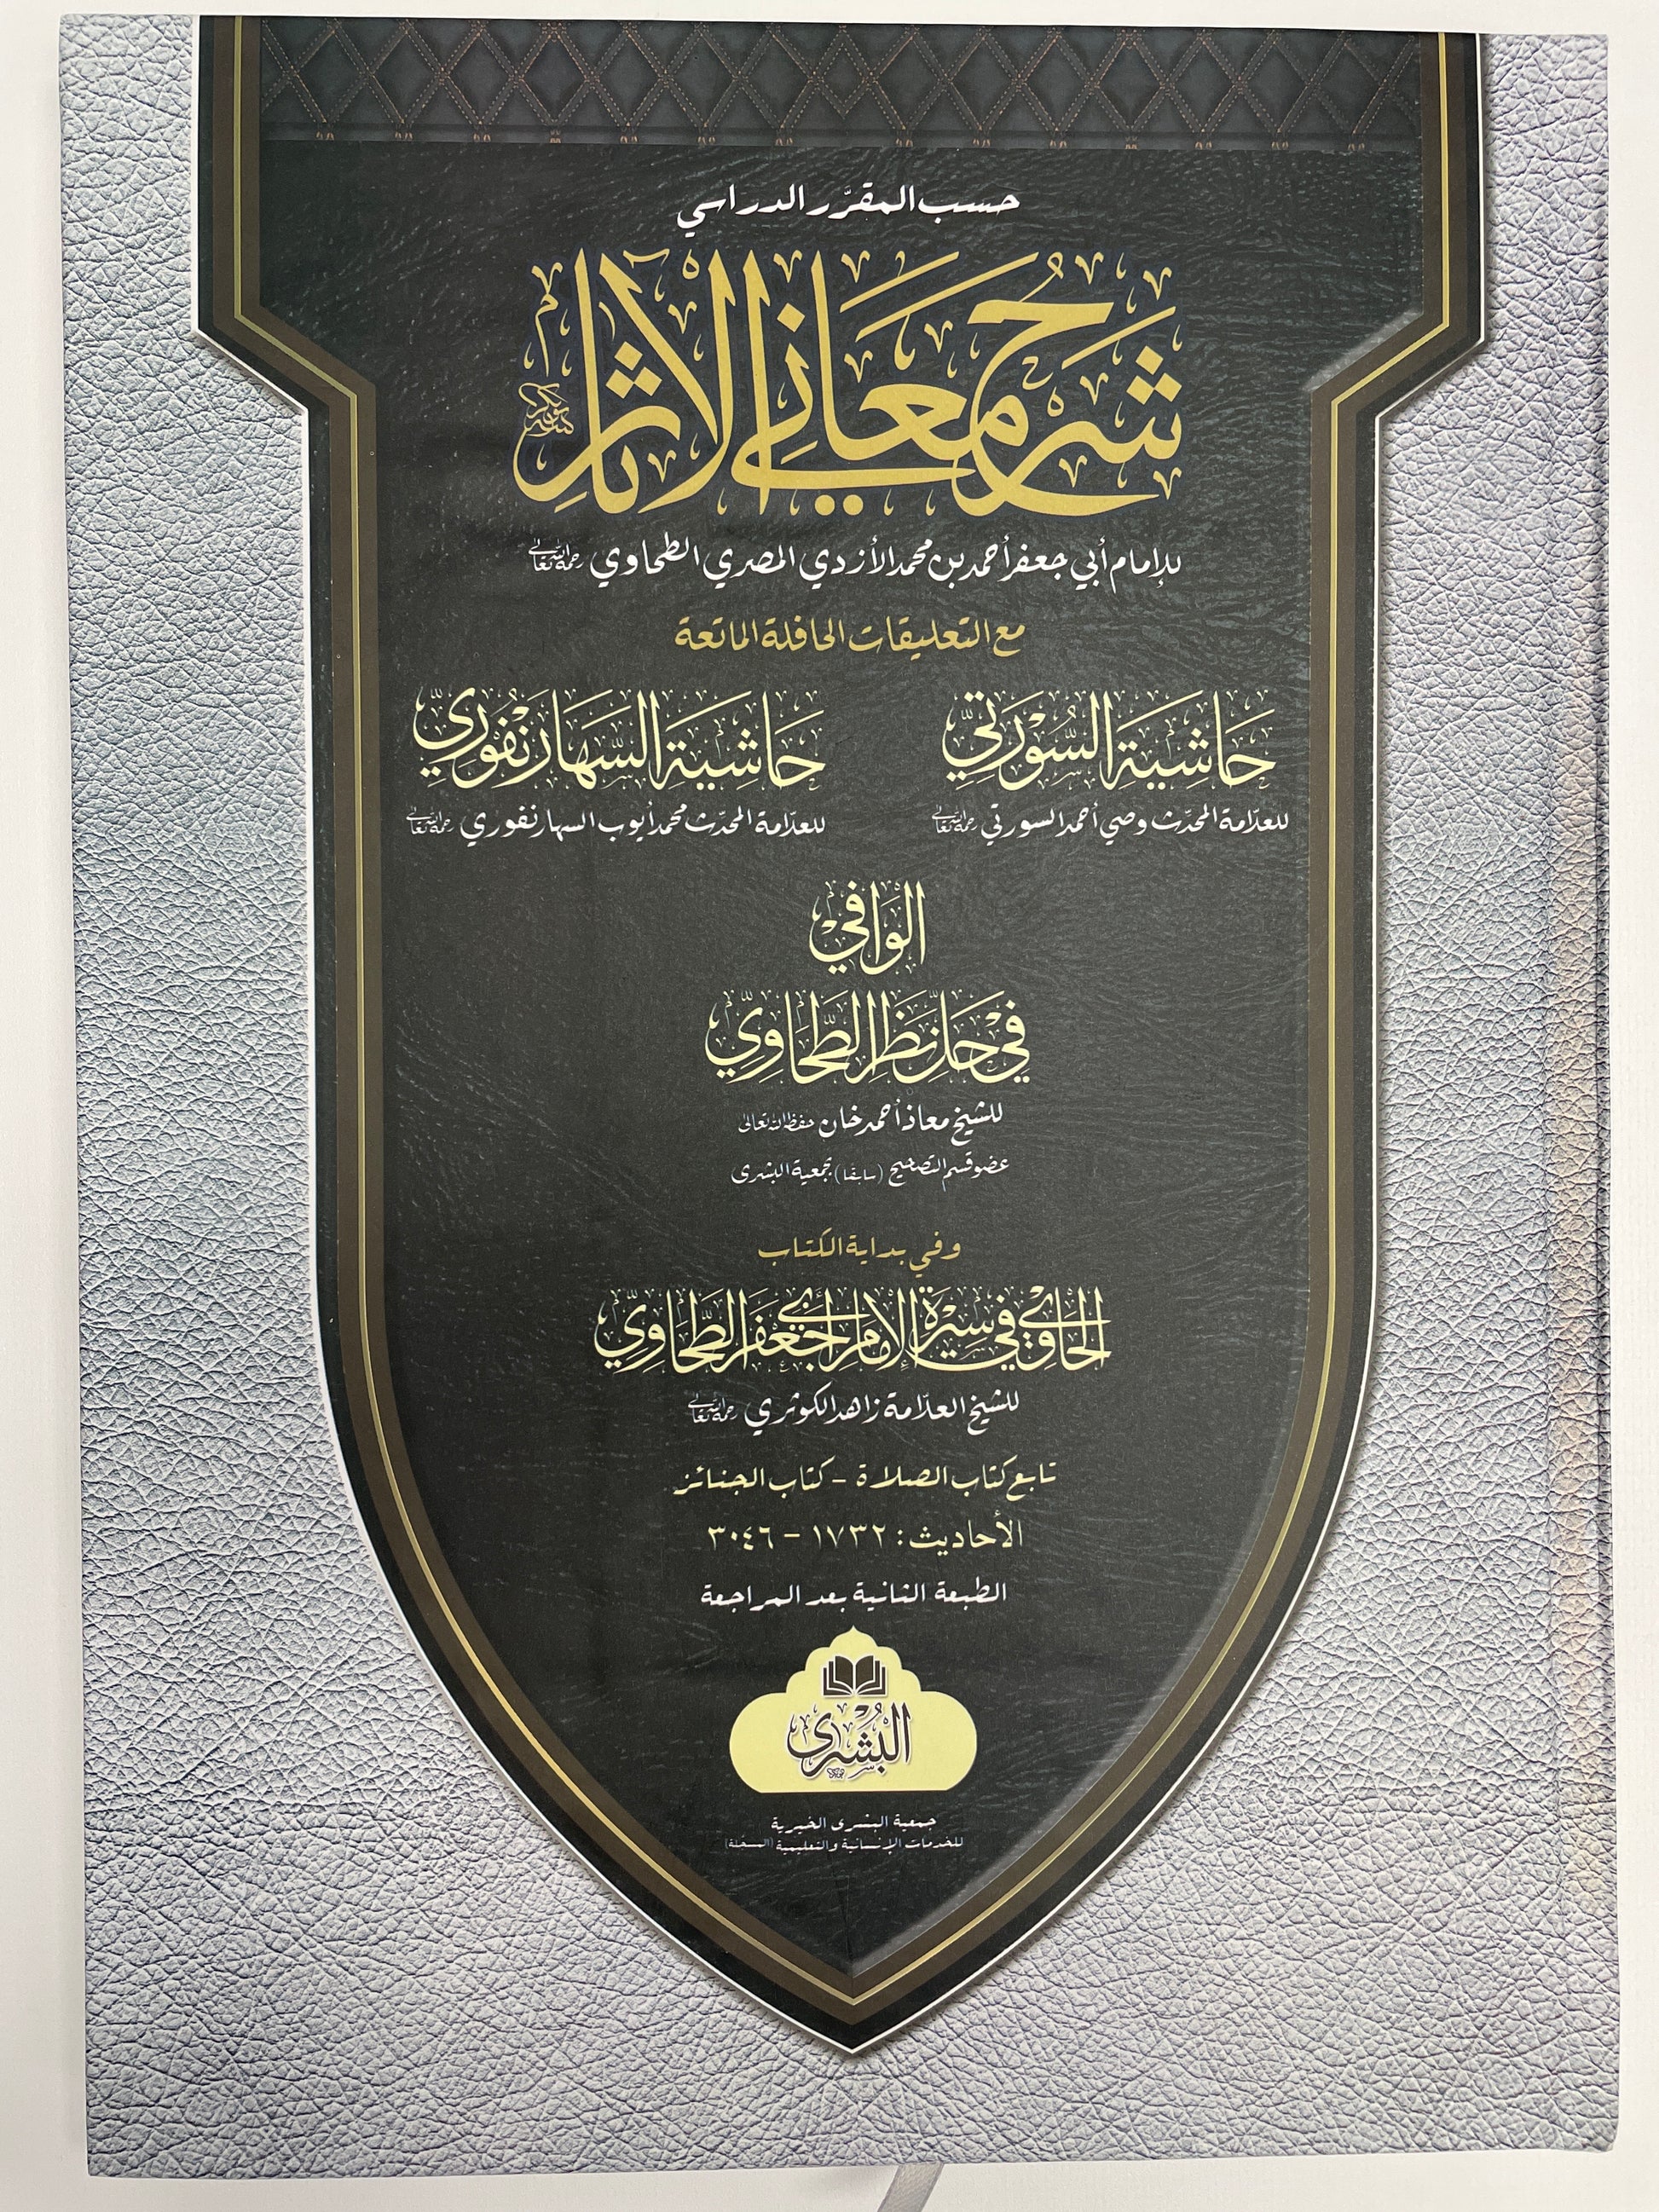 حسب المقرَّر الدراسي
شَرح مَعَاني الآثار
للإمام أبي جعفر أحمد بن محمد الأزدي المصري الطحاوي رحمه الله تعالى
مع التعليقات الحافلة الماتعة
حَاشيَة السُّوْرَتيّ
للعلّامة المحدّث وصي أحمد السورتي رحمه الله تعالى
حَاشيَة السَّهَارَنْفُوْريّ
للعلّامة المحدّث محمد أيوب السهارنفوري رحمه الله تعالى
الوَافيْ
فيْ حَلّ نَظَر الطَّحَاوِيّ
للشيخ معاذ أحمد خان حفظه الله تعالى
عضو قسم التصحيح (سابقًا) بجمعية البشرى
وفي بداية الكتاب
الحَاوِيْ فيْ سِيْرَة الإمَام أبيْ جَعفَر الطَّحَاوِيّ
للشيخ العلّامة زاهد الكوثري رحمه الله تعالى
تابع كتاب الصلاة – كتاب الجنائز
الأحاديث: ١٧٣٢ – ٣٠٤٦
الطبعة الثانية بعد المراجعة
البُشْرى
جمعية البشرى الخيرية
للخدمات الإنسانية والتعليمية (المسجّلة)